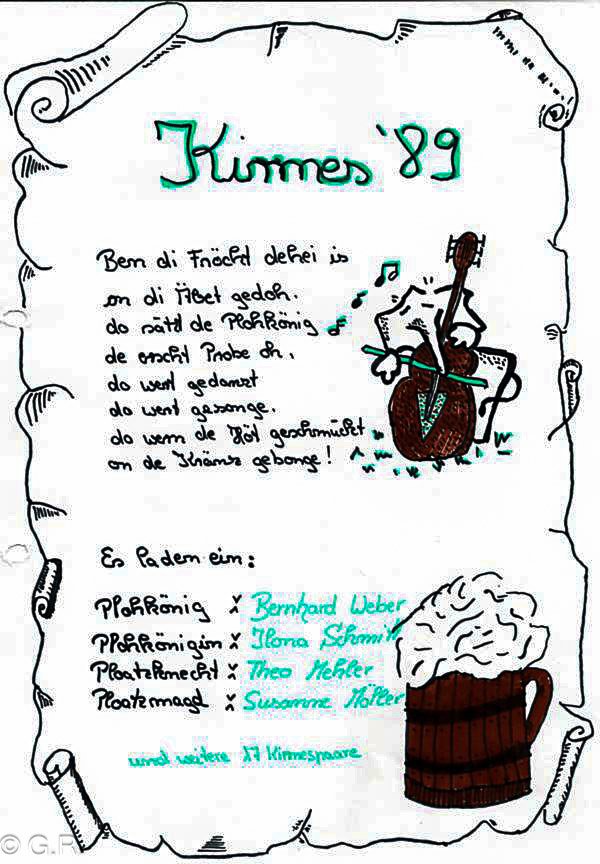 Kirmes '89
Bem di Fröcht dehei is
on di Äbet gedoh.
do sätzt de Plohkönig
de erscht Probe oh,
do wert gedanzt
do wert gesonge,
do wern de Höt geschmückt
on de Kränz gebonge!
Es laden ein:
Plohkönig : Bernhard Weber
Plohkönigin : Ilona Schmitt
Ploatzknecht : Theo Mehler
Ploatzmagd : Susanne Möller
und weitere 17 Kirmespaare
© G.R